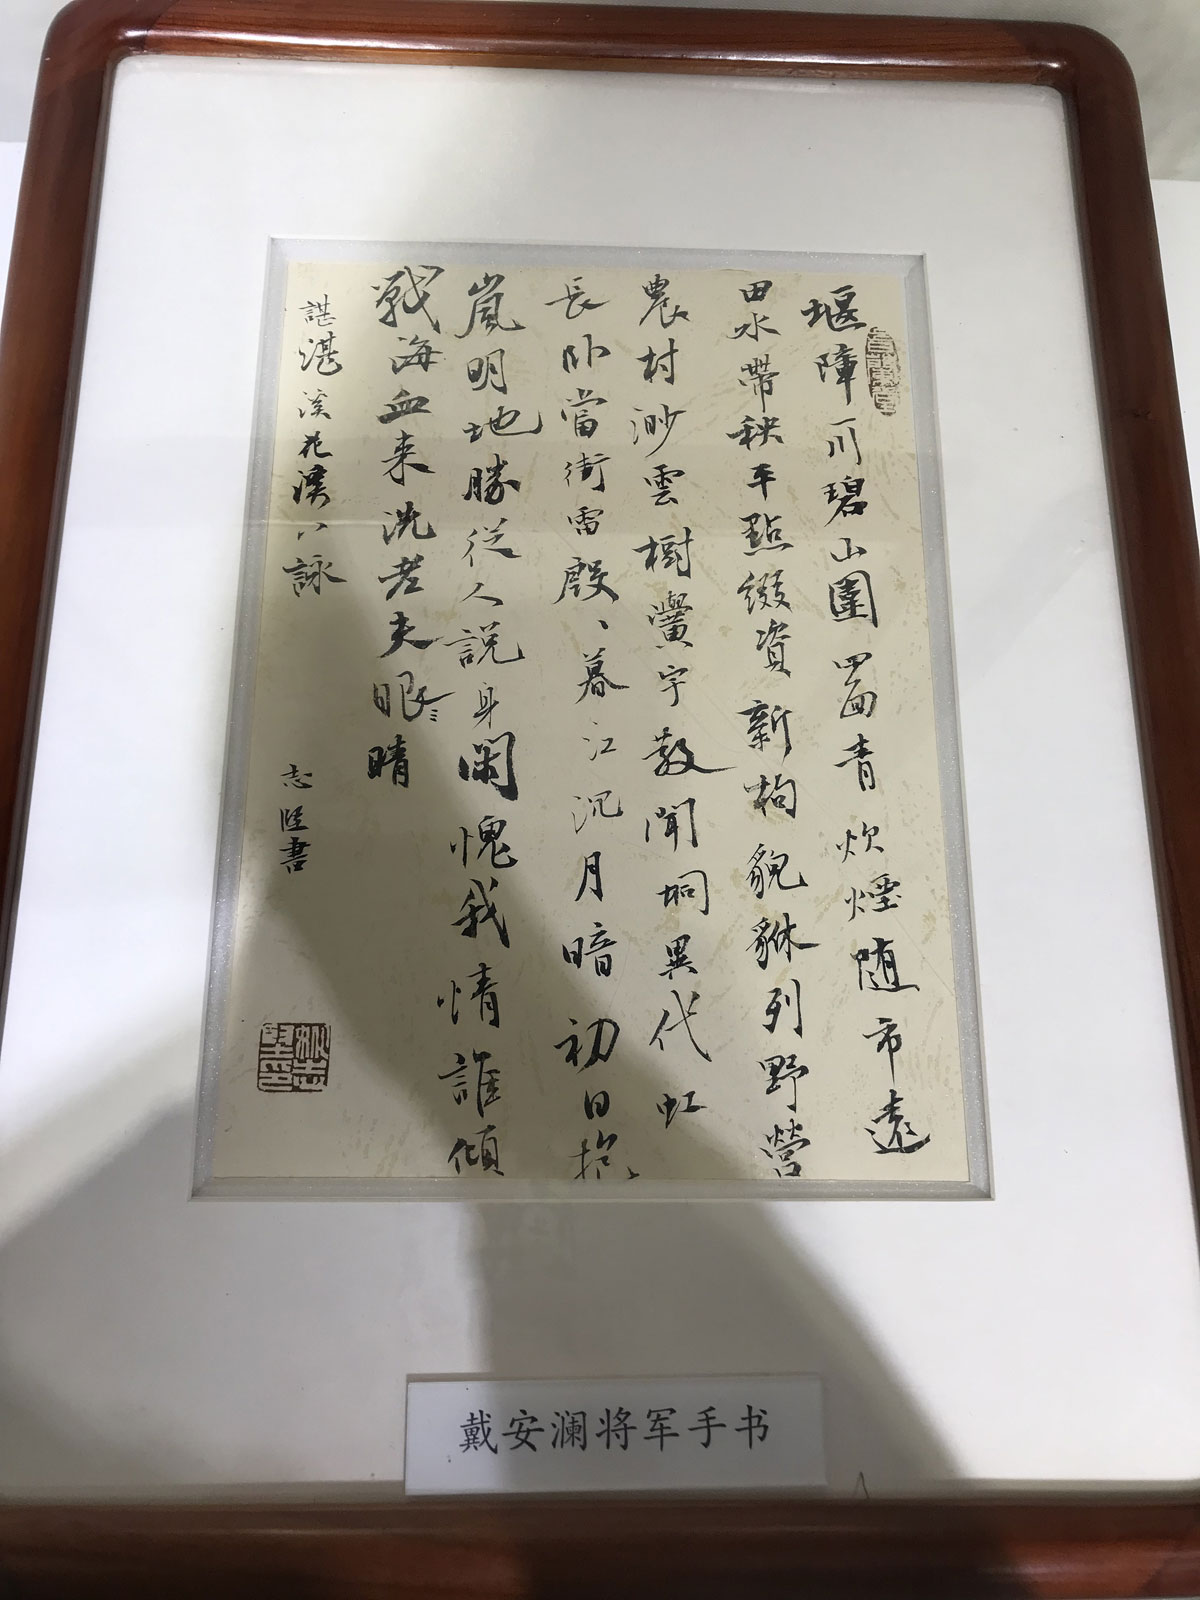 堰障一川碧山圍四面青炊煙随市遠
田水帶秧平點綴資新枸貔貅列野營
農村渺雲樹黌宇散聞桐異代虹
長卧當街雷殷、暮江沉月暗初日抱
嵐明地勝從人説身閑愧我情誰傾
戰海血来洗老夫眼睛
諶湛溪花溪八詠
志堅書
戴安澜将军手书